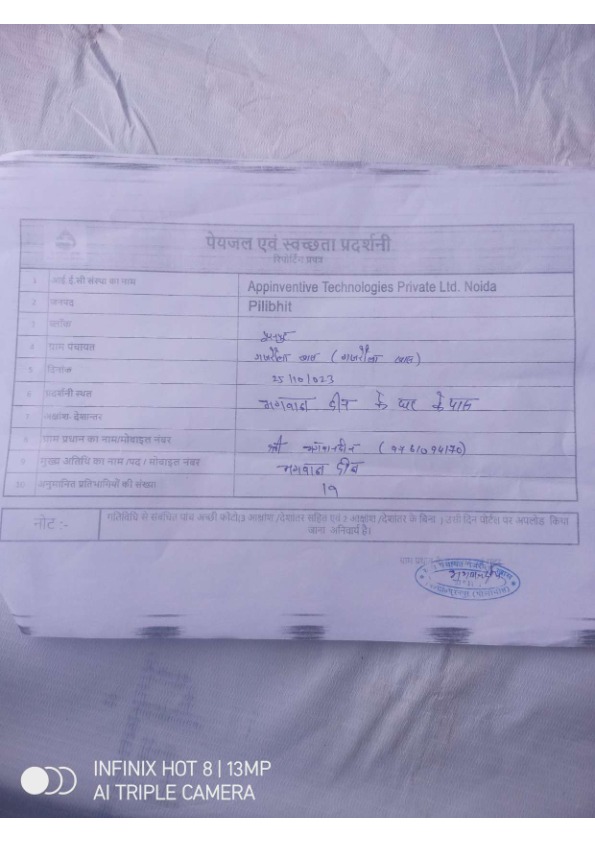 पेयजल एवं स्वच्छता प्रदर्शनी
रिपोर्टिंग प्रपत्र
1 आई.ई.सी संस्था का नाम Appinventive Technologies Private Ltd. Noida
2 जनपद Pilibhit
3 ब्लॉक
4 ग्राम पंचायत
5 दिनांक 25/10/023
6 प्रदर्शनी स्थल भगवान दीन के घर के पास
7 अक्षांश- देशान्तर
8 ग्राम प्रधान का नाम/मोबाइल नंबर श्री
9 मुख्य अतिथि का नाम /पद / मोबाइल नंबर भगवान दीन
10 अनुमानित प्रतिभागियों की संख्या 19
नोट :- गतिविधि से संबंधित पांच अच्छी फोटो(3 अक्षांश /देशांतर सहित एवं 2 अक्षांश /देशांतर के बिना ) उसी दिन पोर्टल पर अपलोड किया
जाना अनिवार्य है।
INFINIX HOT 8 | 13MP
AI TRIPLE CAMERA